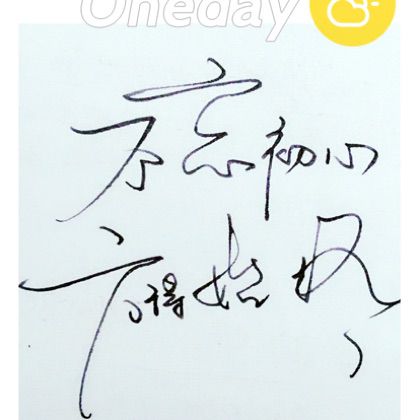 Oneday
不忘初心
方得始终